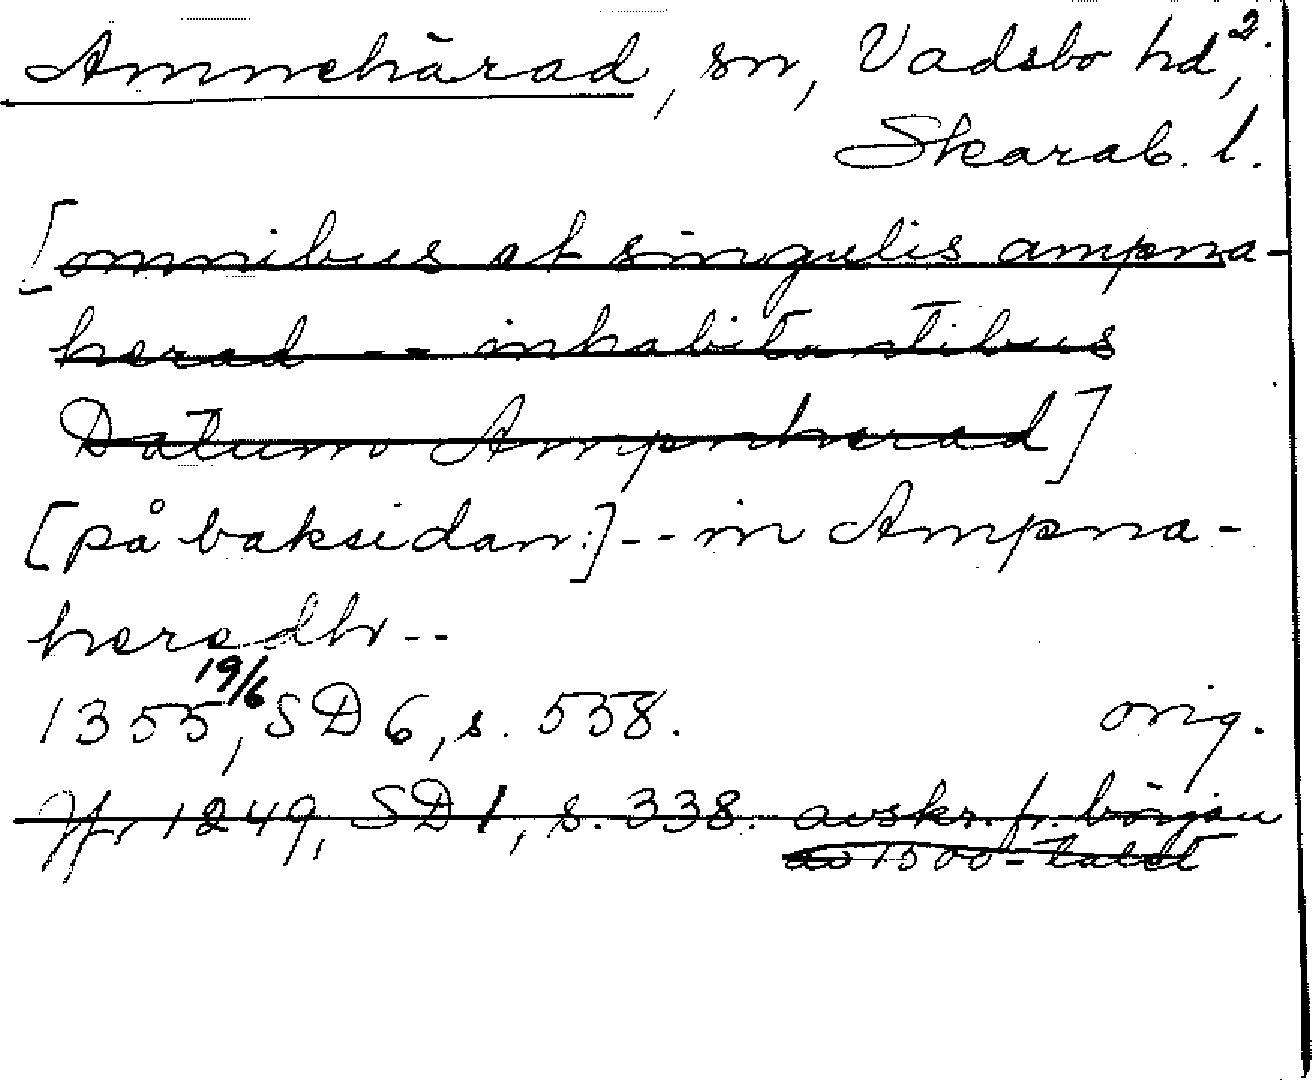 Amnehärad, sn, Vadsbo hd, 2.
Skarab. l.
[omnibus et singulis ampna-
herad -- inhabitantibus
Datum Ampnherad]
[på baksidan:] -- in Ampna-
heredh --
1355 19/6, SD 6, s. 538.
orig.
Jfr 1249, SD 1, s. 338. avskr. fr. början
av 1500-talet